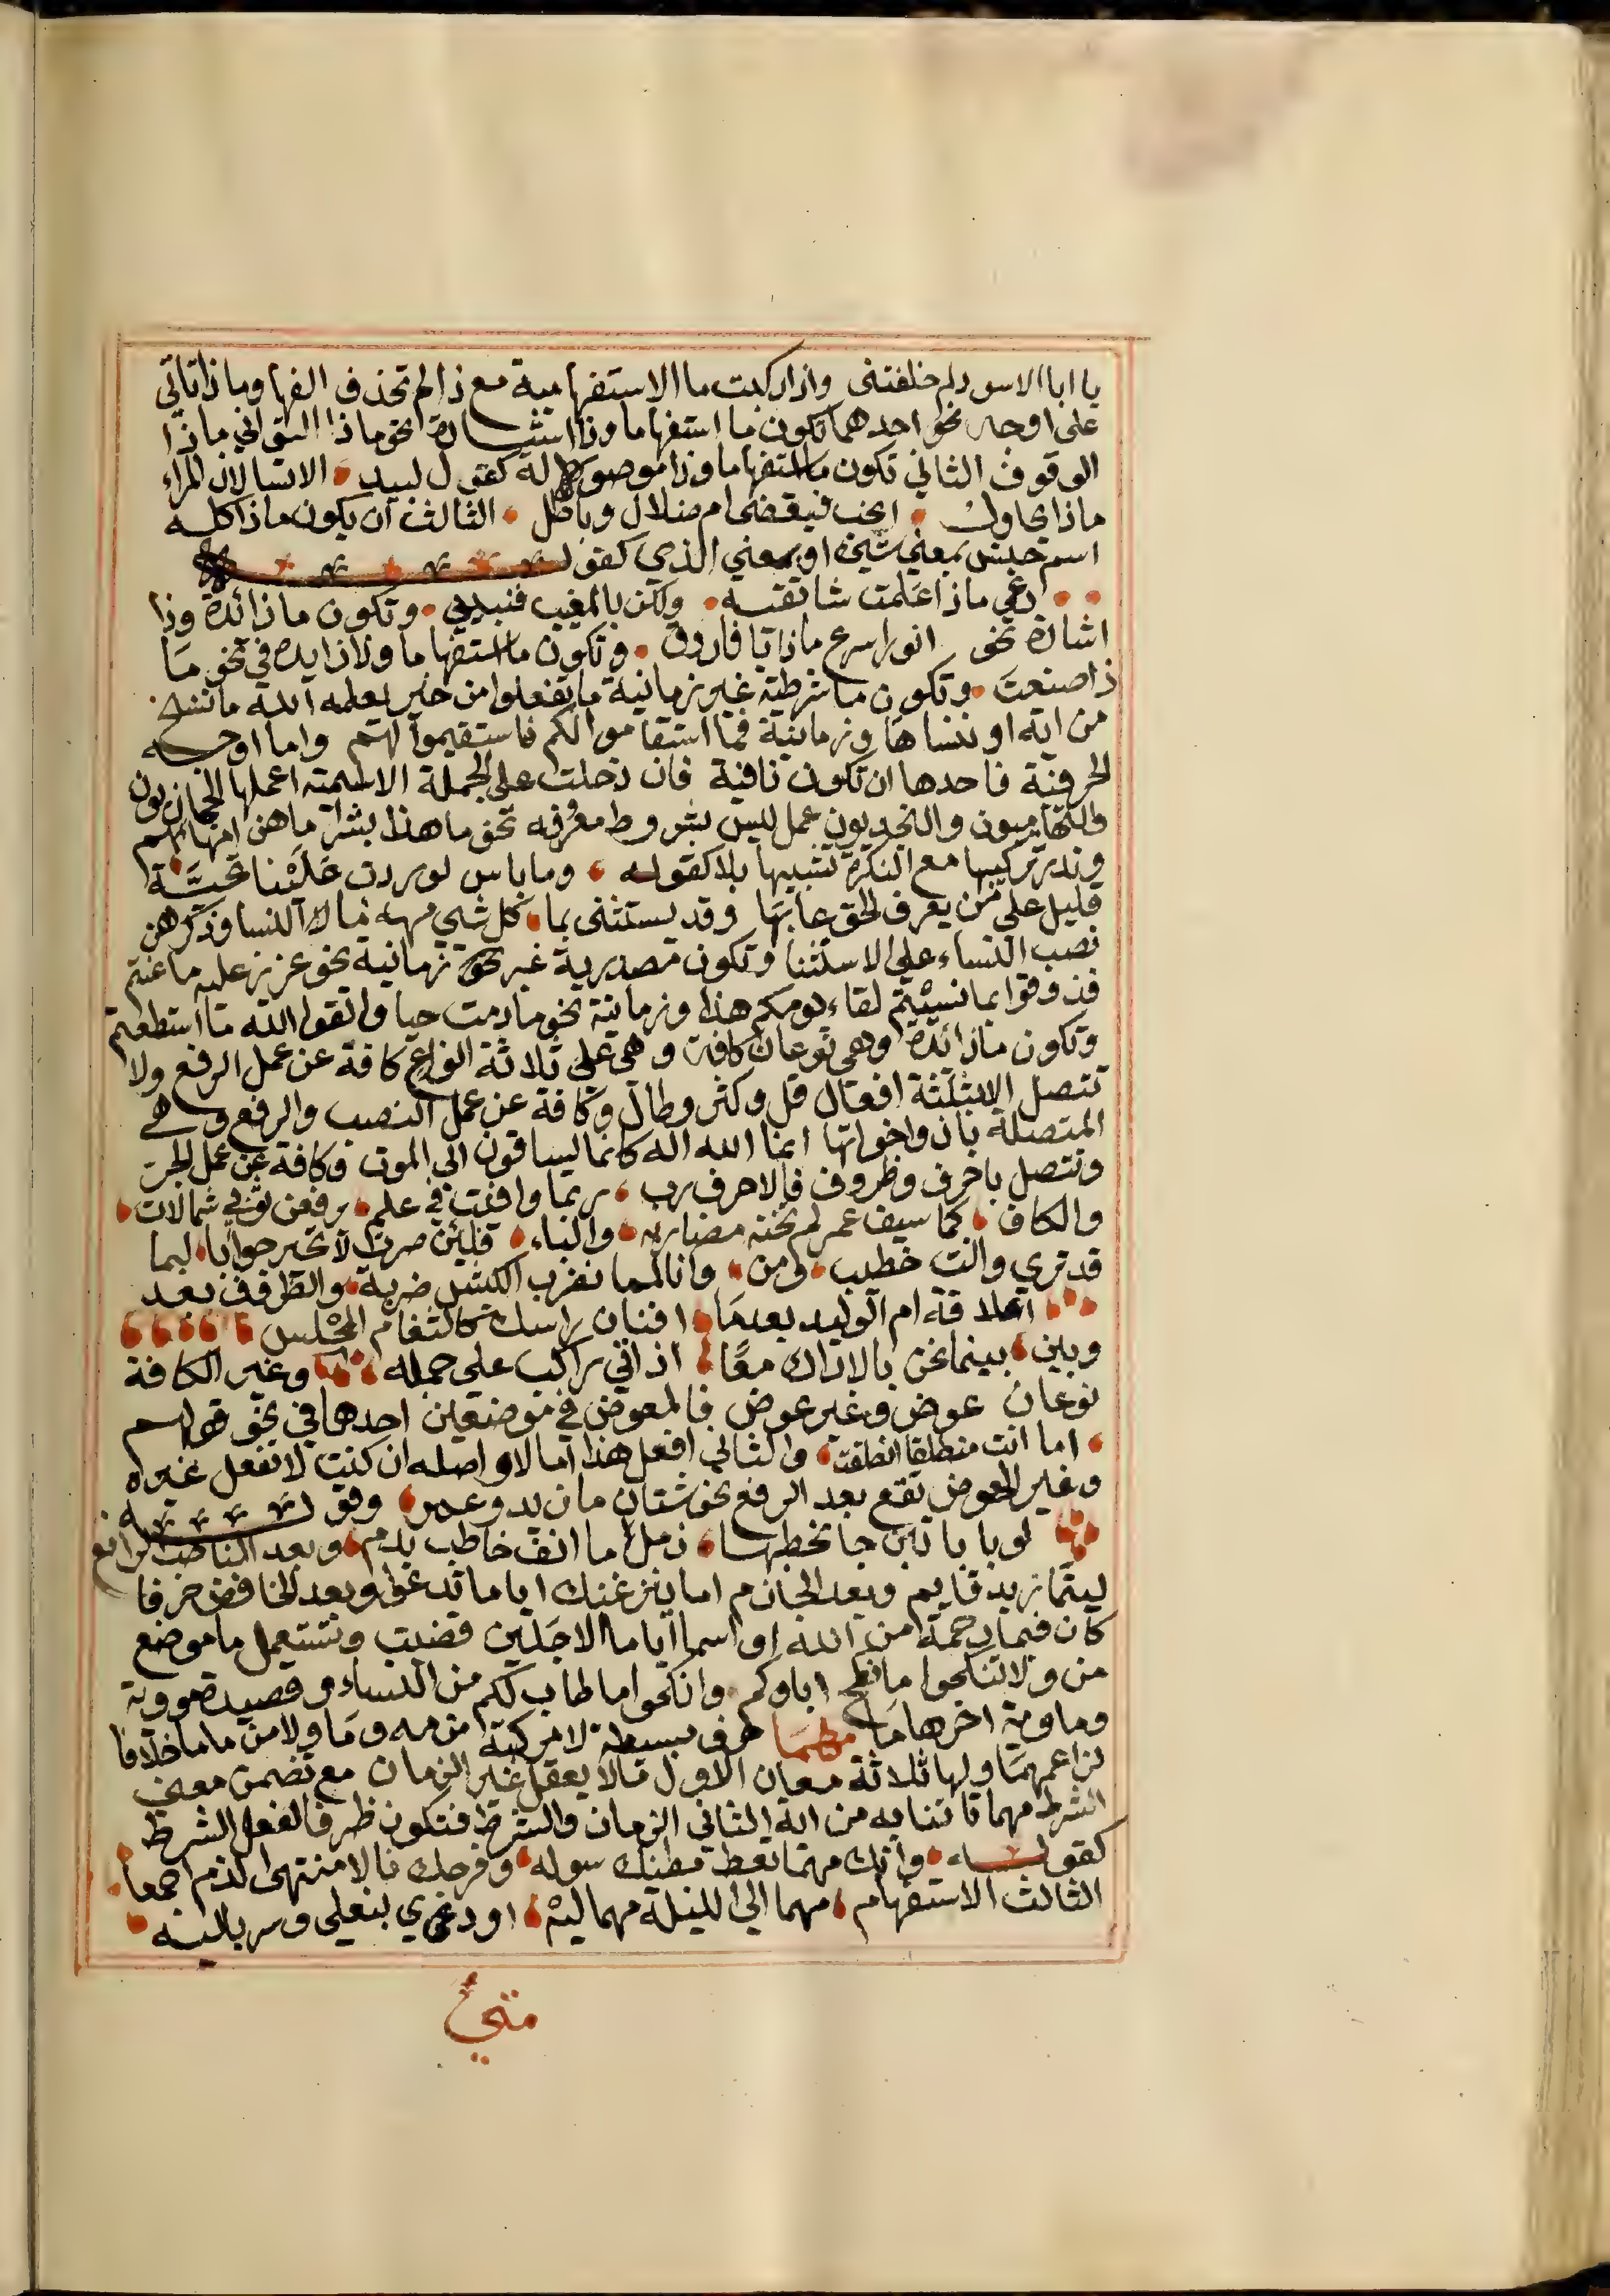 يا ابا الاسود لم خلفتنى واذا ركبت ما الاستفهامية مع ذا لم تحذف الفها وماذا تاتي
على اوجه نحو احدهما تكون ما استفهاما وذا اشارة نحو ماذا التواني ماذا
الوقوف الثاني تكون ما استفهاما وذا موصولة كقول لبيد الا تسالان المراء
ماذا يحاول انحب فيقضى ام ضلال وباطل الثالث ان يكون ماذا كله
اسم جنس بمعني شيء او بمعني الذي كقوله
دعي ماذا علمت ساتقيه ولكن بالمغيب فنبئيني وتكون ما زائدة وذا
اشارة نحو انورا سرع ماذا يا فاروق وتكون ما استفهاما وذا زايدة في نحو ما
ذا صنعت وتكون ما شرطية غير زمانية ما تفعلوا من خير يعلمه الله ما ننسخ
من اية او ننساها وزمانية فما استقاموا لكم فاستقيموا لهم واما اوجه
الحرفية فاحدها ان تكون نافية فان دخلت على الجملة الاسمية اعملها الحجازيون
والتهاميون والنجديون عمل ليس بشروط معرفه نحو ما هذا بشرا ما هن امهاتهم
وندر تركيبها مع النكرة تشبيها بلا كقوله وما باس لو ردت علينا تحيّة
قليل على من يعرف الحق عابها وقد يستثنى بما كل شي مهه ما النسا وذكرهن
نصب النساء على الاستثنا وتكون مصدرية غير زمانية نحو عزيز عليه ما عنتم
فذوقوا بما نسيتم لقاء يومكم هذا وزمانية نحو ما دمت حيا واتقوا الله ما استطعتم
وتكون ما زائدة وهي نوعان كافة وهي على ثلاثة انواع كافة عن عمل الرفع ولا
تتصل الا بثلثة افعال قل وكثر وطال وكافة عن عمل النصب والرفع وهي
المتصلة بان واخواتها انما الله اله كانما يساقون الى الموت وكافة عن عمل الجر
وتتصل باحرف وظروف فالاحرف رب ربما اوفيت في علم يرفعن ثوبي شمالات
والكاف كما سيف عمرو لم تخنه مضاربه والباء فلئن صرت لا تحير جوابا لبما
قد ترى وانت خطيب ومن وانا لمما نضرب الكبش ضربة والظروف بعد
اعلاقة ام الوليد بعدما افنان راسك كالثغام المخلس
وبين بينما نحن بالاراك معًا اذ اتي راكب على جمله وغير الكافة
نوعان عوض وغير عوض فالمعوض في موضعين احدها في نحو قولهم
اما انت منطلقا انطلقت والثاني افعل هذا اما لا واصله ان كنت لا تفعل غيره
وغير العوض تقع بعد الرفع نحو شتان ما زيد وعمرو وقوله
لو بابانين جا يخطبها زمل ما انف خاطب بدم وبعد الناصب الرافع
ليتما زيد قايم وبعد الجازم اما ينزغنك اياما تدعوا وبعد الخافض حرفا
كان فبما رحمة من الله او اسما ايما الاجلين قضيت وتستعمل ما موضع
من ولا تنكحوا ما نكح اباوكم وانكحوا ما طاب لكم من النساء وقصيدة مووية
وماوية اخرها ما مهما ظرف بسيطة لا مركبة من مه وما ولا من ما ما خلافا
لزاعمهما ولها ثلاثة معان الاول ما لا يعقل غير الزمان مع تضمن معنى
الشرط مهما تاتنا به من اية الثاني الزمان والشرط فتكون ظرفا لفعل الشرط
كقوله وانك مهما تعط بطنك سوله وفرجك نالا منتهى الذم اجمعا
الثالث الاستفهام مهما لي الليلة مهما ليه اودى بنعلي وسرباليه
متى